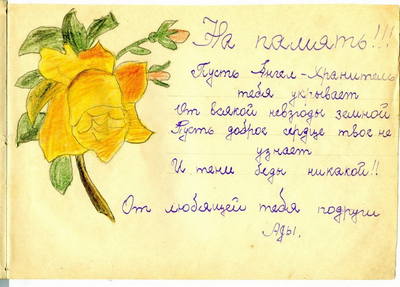 На память!!!
Пусть Ангел-Хранитель
тебя укрывает
От всякой невзгоды земной
Пусть доброе сердце твое не
узнает
И тени беды никакой!!
От любящей тебя подруги
Ады.